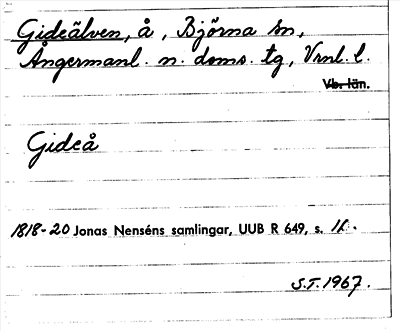 Gideälven, å, Björna sn,
Ångermanl. n. doms. tg, Vrnl. l.
Vb. län.
Gideå
1818-20 Jonas Nenséns samlingar, UUB R 649, s.
S.T. 1967.